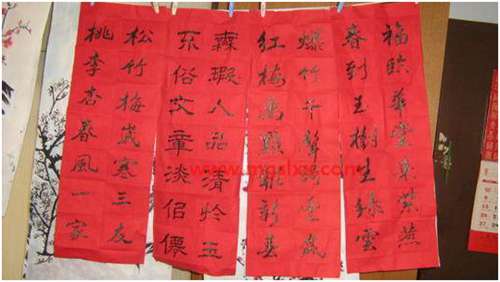 福臨華堂來紫燕
春到玉樹生綠雲
爆竹千聲歲
紅梅萬點新春
無瑕人品清於玉
不俗文章淡佀僊
松竹梅歲寒三友
桃李杏春風一家